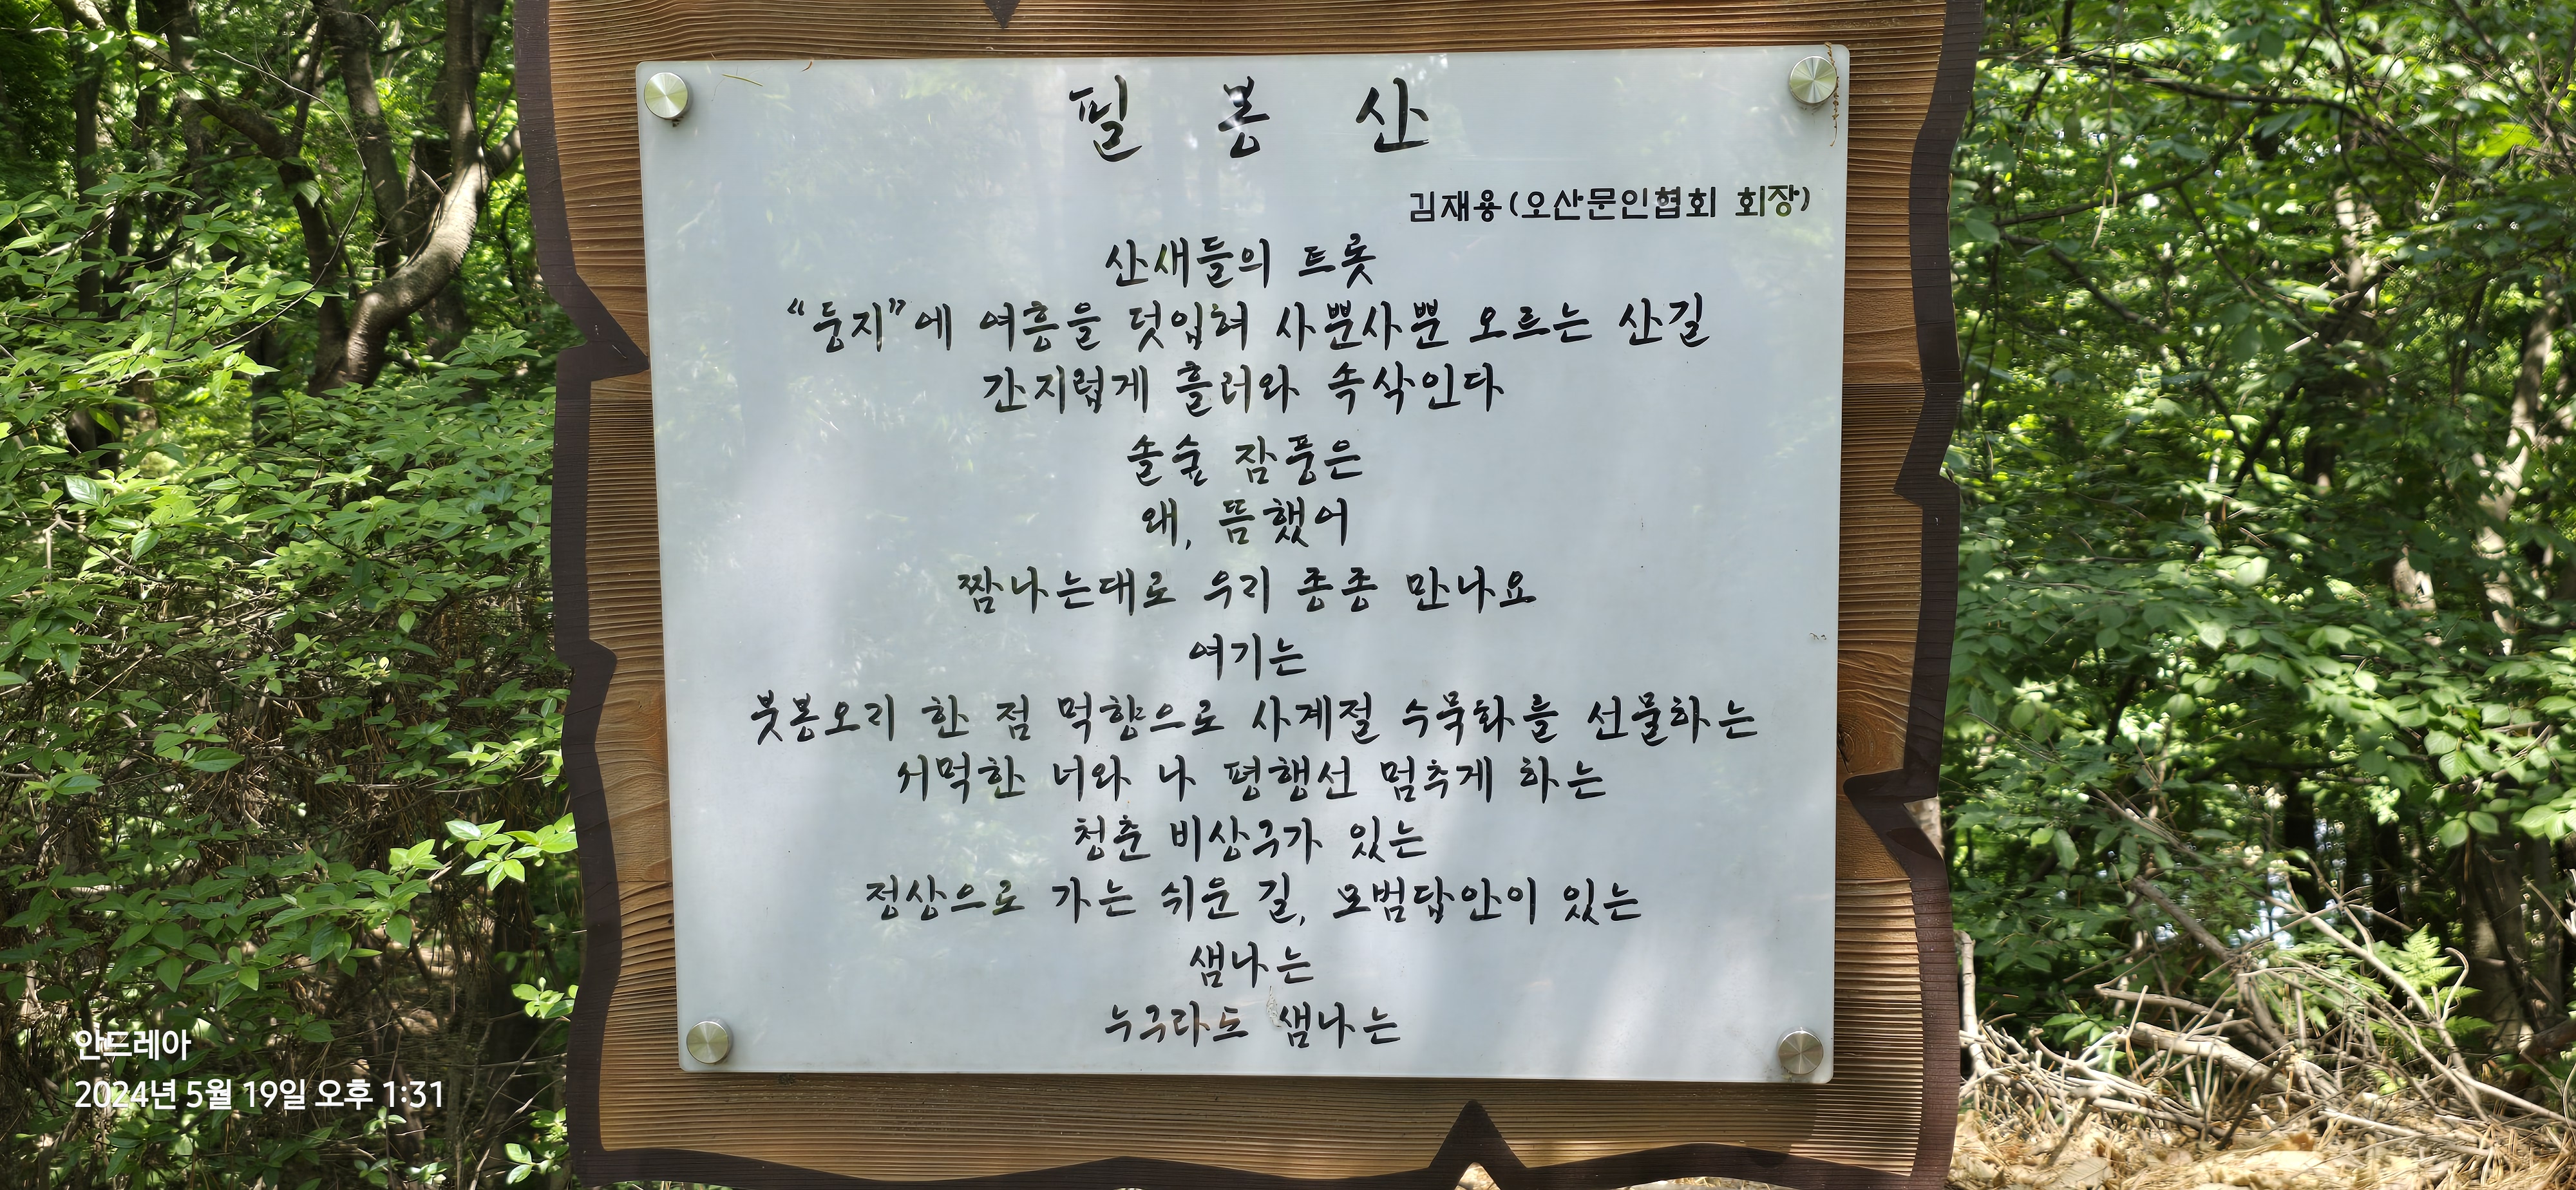 필 봉 산
김재용(오산문인협회 회장)
산새들의 트롯
"둥지"에 여흥을 덧입혀 사뿐사뿐 오르는 산길
간지럽게 흘러와 속삭인다
솔숲 잠풍은
왜, 뜸했어
짬나는대로 우리 종종 만나요
여기는
붓봉오리 한 점 먹향으로 사계절 수묵화를 선물하는
서먹한 너와 나 평행선 멈추게 하는
청춘 비상구가 있는
정상으로 가는 쉬운 길, 모범답안이 있는
샘나는
누구라도 샘나는
안드레아
2024년 5월 19일 오후 1:31